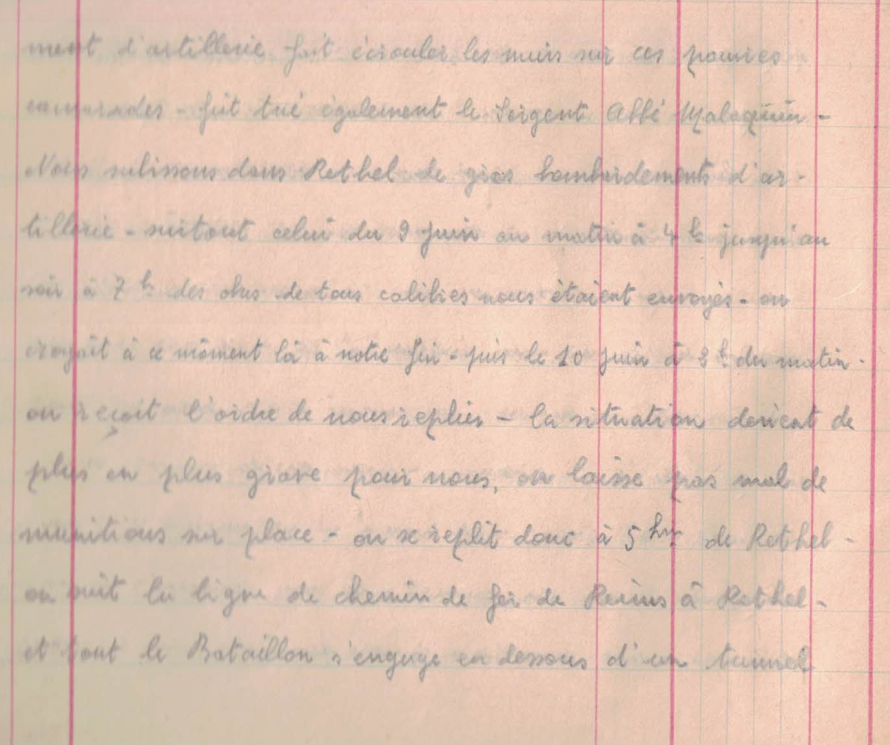 ment d'artillerie fait écrouler les murs sur ces pauvres
camarades - fut tué également le Sergent Abbé Malaquin -
Nous subissons dans Rethel de gros bombardements d'ar-
tillerie - surtout celui du 9 juin au matin à 4 h jusqu'au
soir à 7 h des obus de tous calibres nous étaient envoyés - on
croyait à ce moment là à notre fin - puis le 10 juin à 3 h du matin -
on reçoit l'ordre de nous replier - la situation devient de
plus en plus grave pour nous, on laisse pas mal de
munitions sur place - on se replit donc à 5 de Rethel -
on suit la ligne de chemin de fer de Reims à Rethel -
et tout le Bataillon s'engage en dessous d'un tunnel